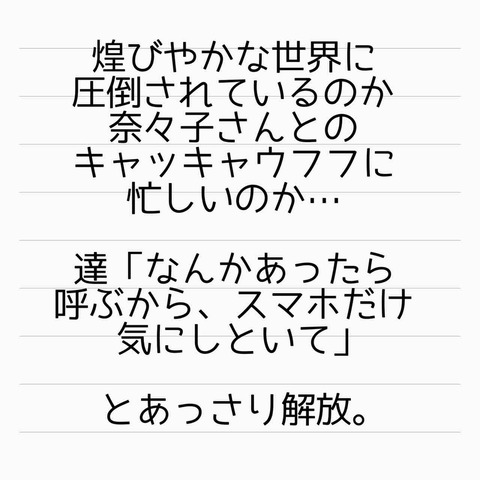 煌びやかな世界に
圧倒されているのか
奈々子さんとの
キャッキャウフフに
忙しいのか…
達「なんかあったら
呼ぶから、スマホだけ
気にしといて」
とあっさり解放。